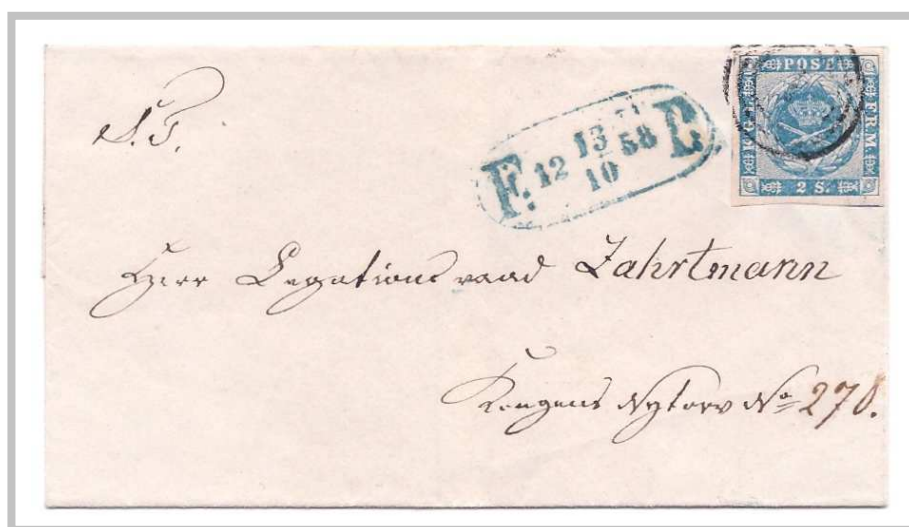 S. T.
F: 12 13/10 58 C
KGL POST FRM.
2 S.
Herr Legationsraad Zahrtmann
Kongens Nytorv No 278.